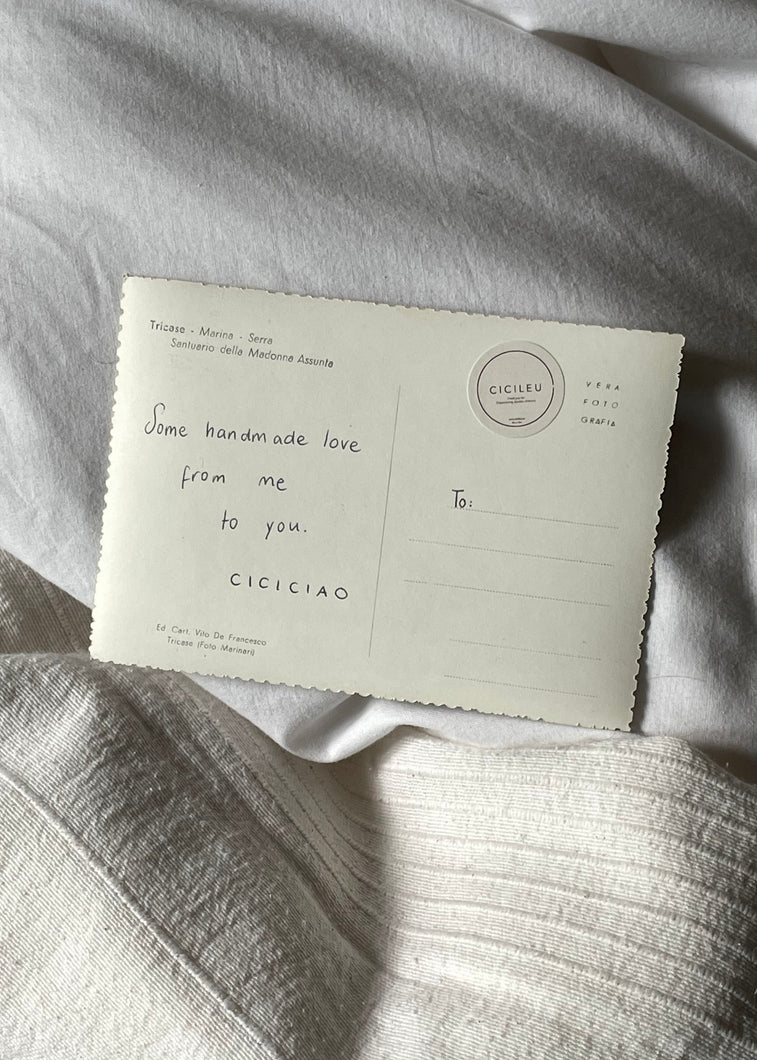 Tricase - Marina - Serra
Santuario della Madonna Assunta
Some handmade love
from me
to you.
CICICIAO
Ed. Cart. Vito De Francesco
Tricase (Foto Marinari)
CICILEU
VERA
FOTO
GRAFIA
To: